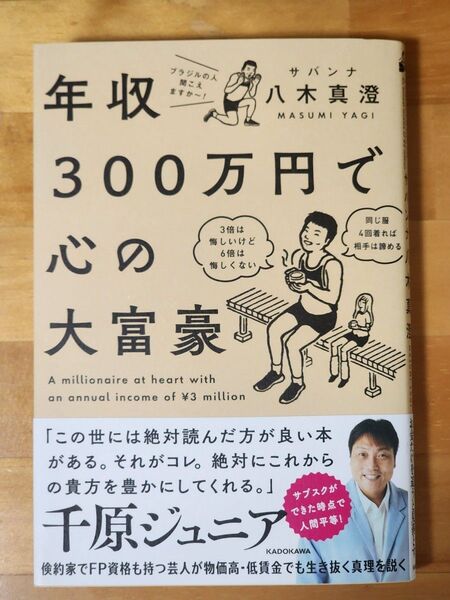 ブラジルの人
聞こえ
ますか〜!
サバンナ
八木真澄
MASUMI YAGI
年収
300万円で
心の
大富豪
3倍は
悔しいけど
6倍は
悔しくない
同じ服
4回着れば
相手は諦める
A millionaire at heart with
an annual income of ¥3 million
「この世には絶対読んだ方が良い本
がある。それがコレ。絶対にこれから
の貴方を豊かにしてくれる。」
千原ジュニア
サブスクが
できた時点で
人間平等!
KADOKAWA
倹約家でFP資格も持つ芸人が物価高・低賃金でも生き抜く真理を説く